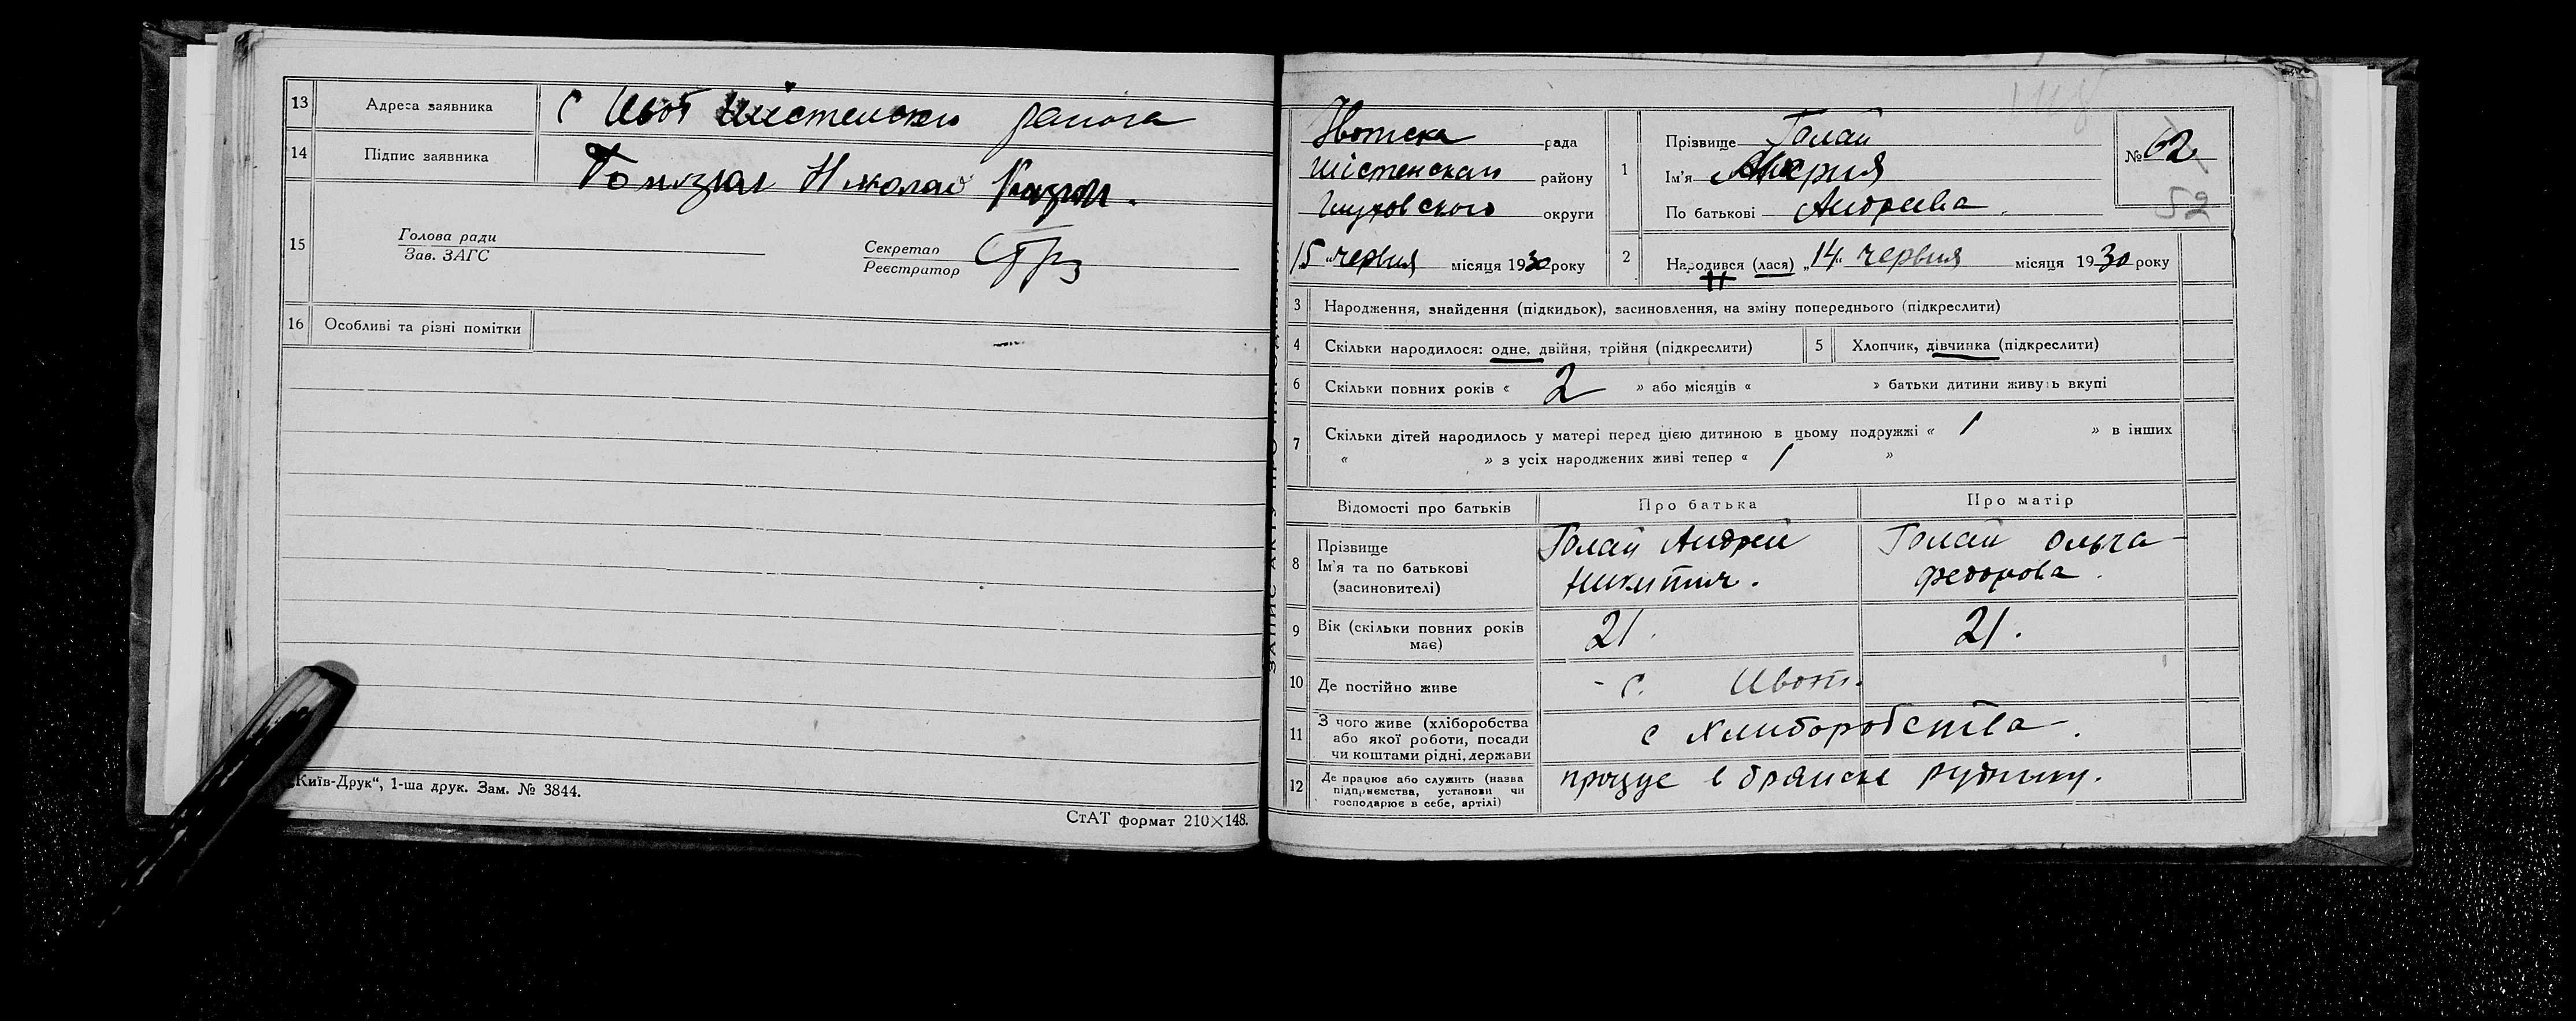 13 Адреса заявника С Ивот Шістенско района
14 Підпис заявника Николай
15 Голова ради
Зав. ЗАГС
Секретар
Реєстратор
16 Особливі та різні помітки
„Київ-Друк“, 1-ша друк. Зам. № 3844.
СтАТ формат 210×148.
Ивотска рада
Шістенскаи району
Глуховского округи
15 „червня місяця 1930 року
1 Прізвище Галай
Ім'я Мария
По батькові Андреева
№ 62
52
2 Народився (лася) „14“ червня місяця 1930 року
3 Народження, знайдення (підкидьок), засиновлення, на зміну попереднього (підкреслити)
4 Скільки народилося: одне, двійня, трійня (підкреслити) 5 Хлопчик, дівчинка (підкреслити)
6 Скільки повних років « 2 » або місяців « » батьки дитини живуть вкупі
7 Скільки дітей народилось у матері перед цією дитиною в цьому подружжі « 1 » в інших
« » з усіх народжених живі тепер « 1 »
Відомості про батьків Про батька Про матір
8 Прізвище
Ім'я та по батькові
(засиновителі)
Галай Андрей
Никитич.
Галай Ольга
Федорова.
9 Вік (скільки повних років
має)
21. 21.
10 Де постійно живе - с. Ивот.
11 З чого живе (хліборобства
або якої роботи, посади
чи коштами рідні, держави
с хлиборобства.
12 Де працює або служить (назва
підприємства, установи чи
господарює в себе, артілі)
працує в брянске руднику.